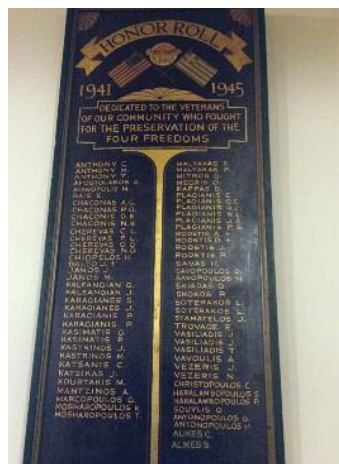 HONOR ROLL
1941 1945
DEDICATED TO THE VETERANS
OF OUR COMMUNITY WHO FOUGHT
FOR THE PRESERVATION OF THE
FOUR FREEDOMS
ANTHONY C.
ANTHONY M.
ANTHONY T.
APOSTOLAROS
AVANOPOLIS N.
CHACONAS A.G.
CHACONAS P.G.
CHACONIS G.
CHACONIS N.
CHEREVAS C.L.
CHEREVAS
CHEREVAS
CHEREVAS
CHIOPELOS H.
JANOS J.
JANOS M.
KALFANGIAN G.
KALFANGIAN J.
KARAGIANES S.
KARAGIANES J.
KARAGIANIS P.
KARAGIANIS P.
KASIMATIS G.
KASIMATIS P.
KASTRINOS J.
KASTRINOS M.
KATSANIS C.
KATSIKAS J.
KOURTAKIS M.
MANTZINOS A.
MARCOPOULOS G.
MOSHAROPOULOS
MOSHAROPOULOS T.
MALYARAS
MALYARAS
MITROS G.
NEGRIS
PAPPAS
PLAGIANIS
PLAGIANIS
PLAGIANIS
PLAGIANIS
PLAGIANIS
PLAGIANIS
RODETIS A.
RODETIS D.
RODETIS J.
RODETIS P.
SAVAS H.
SAVOPOULOS D.
SAVOPOULOS N.
SKIADAS G.
SKOKOS P.
SOTERAKOS L.
SOTERAKOS
STAMATELOS J.
TROVAGE E.
VASILIADIS J.
VASILIADIS J.
VASILIADIS T.
VAVOULIS A.
VEZERIS J.
VEZERIS N.
CHRISTOPOULOS C.
HARALAMBOPOULOS S.
HARALAMBOPOULOS P.
SOUVLIS G.
ANTONOPOULOS G.
ANTONOPOULOS H.
ALIKES C.
ALIKES S.